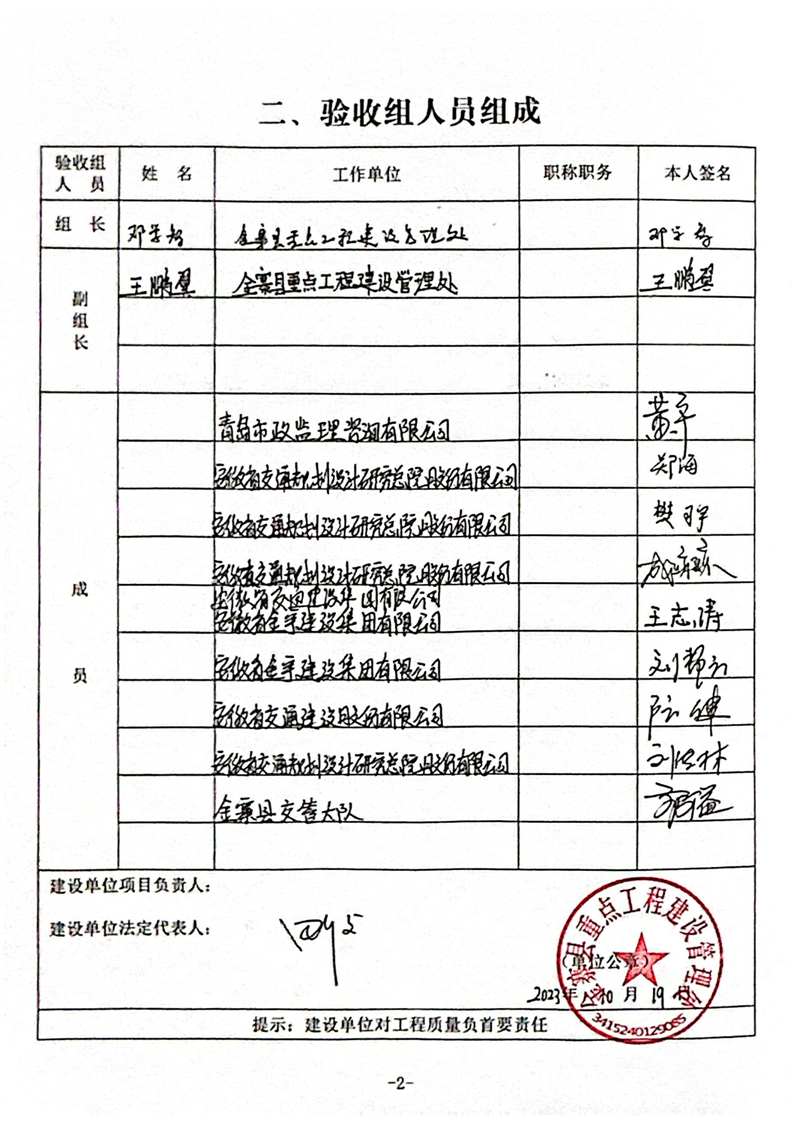 二、验收组人员组成
验收组人员 姓名 工作单位 职称职务 本人签名
组长 邓学 金寨县重点工程建设管理处 邓学
副组长 王鹏翼 金寨县重点工程建设管理处 王鹏翼
成员
青岛市政监理咨询有限公司 黄平
安徽省交通规划设计研究总院股份有限公司 郑海
安徽省交通规划设计研究总院股份有限公司 樊
安徽省交通规划设计研究总院股份有限公司
安徽省交通建设集团有限公司
安徽省金寨建设集团有限公司 王志涛
安徽省金寨建设集团有限公司 刘
安徽省交通建设股份有限公司
安徽省交通规划设计研究总院股份有限公司 刘 林
金寨县交管大队
建设单位项目负责人:
建设单位法定代表人:
金寨县重点工程建设管理处
(单位公章)
2023年10月19日
3415240129065
提示:建设单位对工程质量负首要责任
-2-